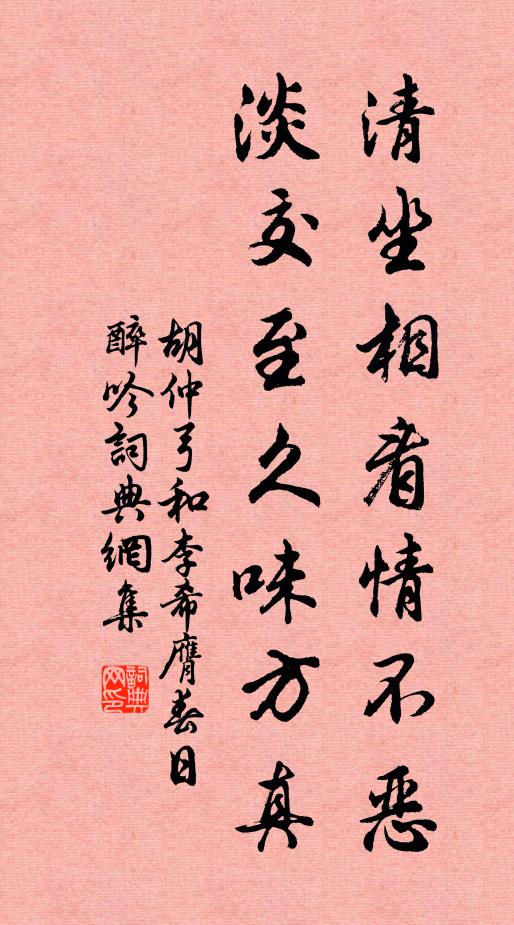 清坐相看情不惡
淡交至久味方真
胡仲弓和李希膺春日
醉吟詞典網集
詞典網印